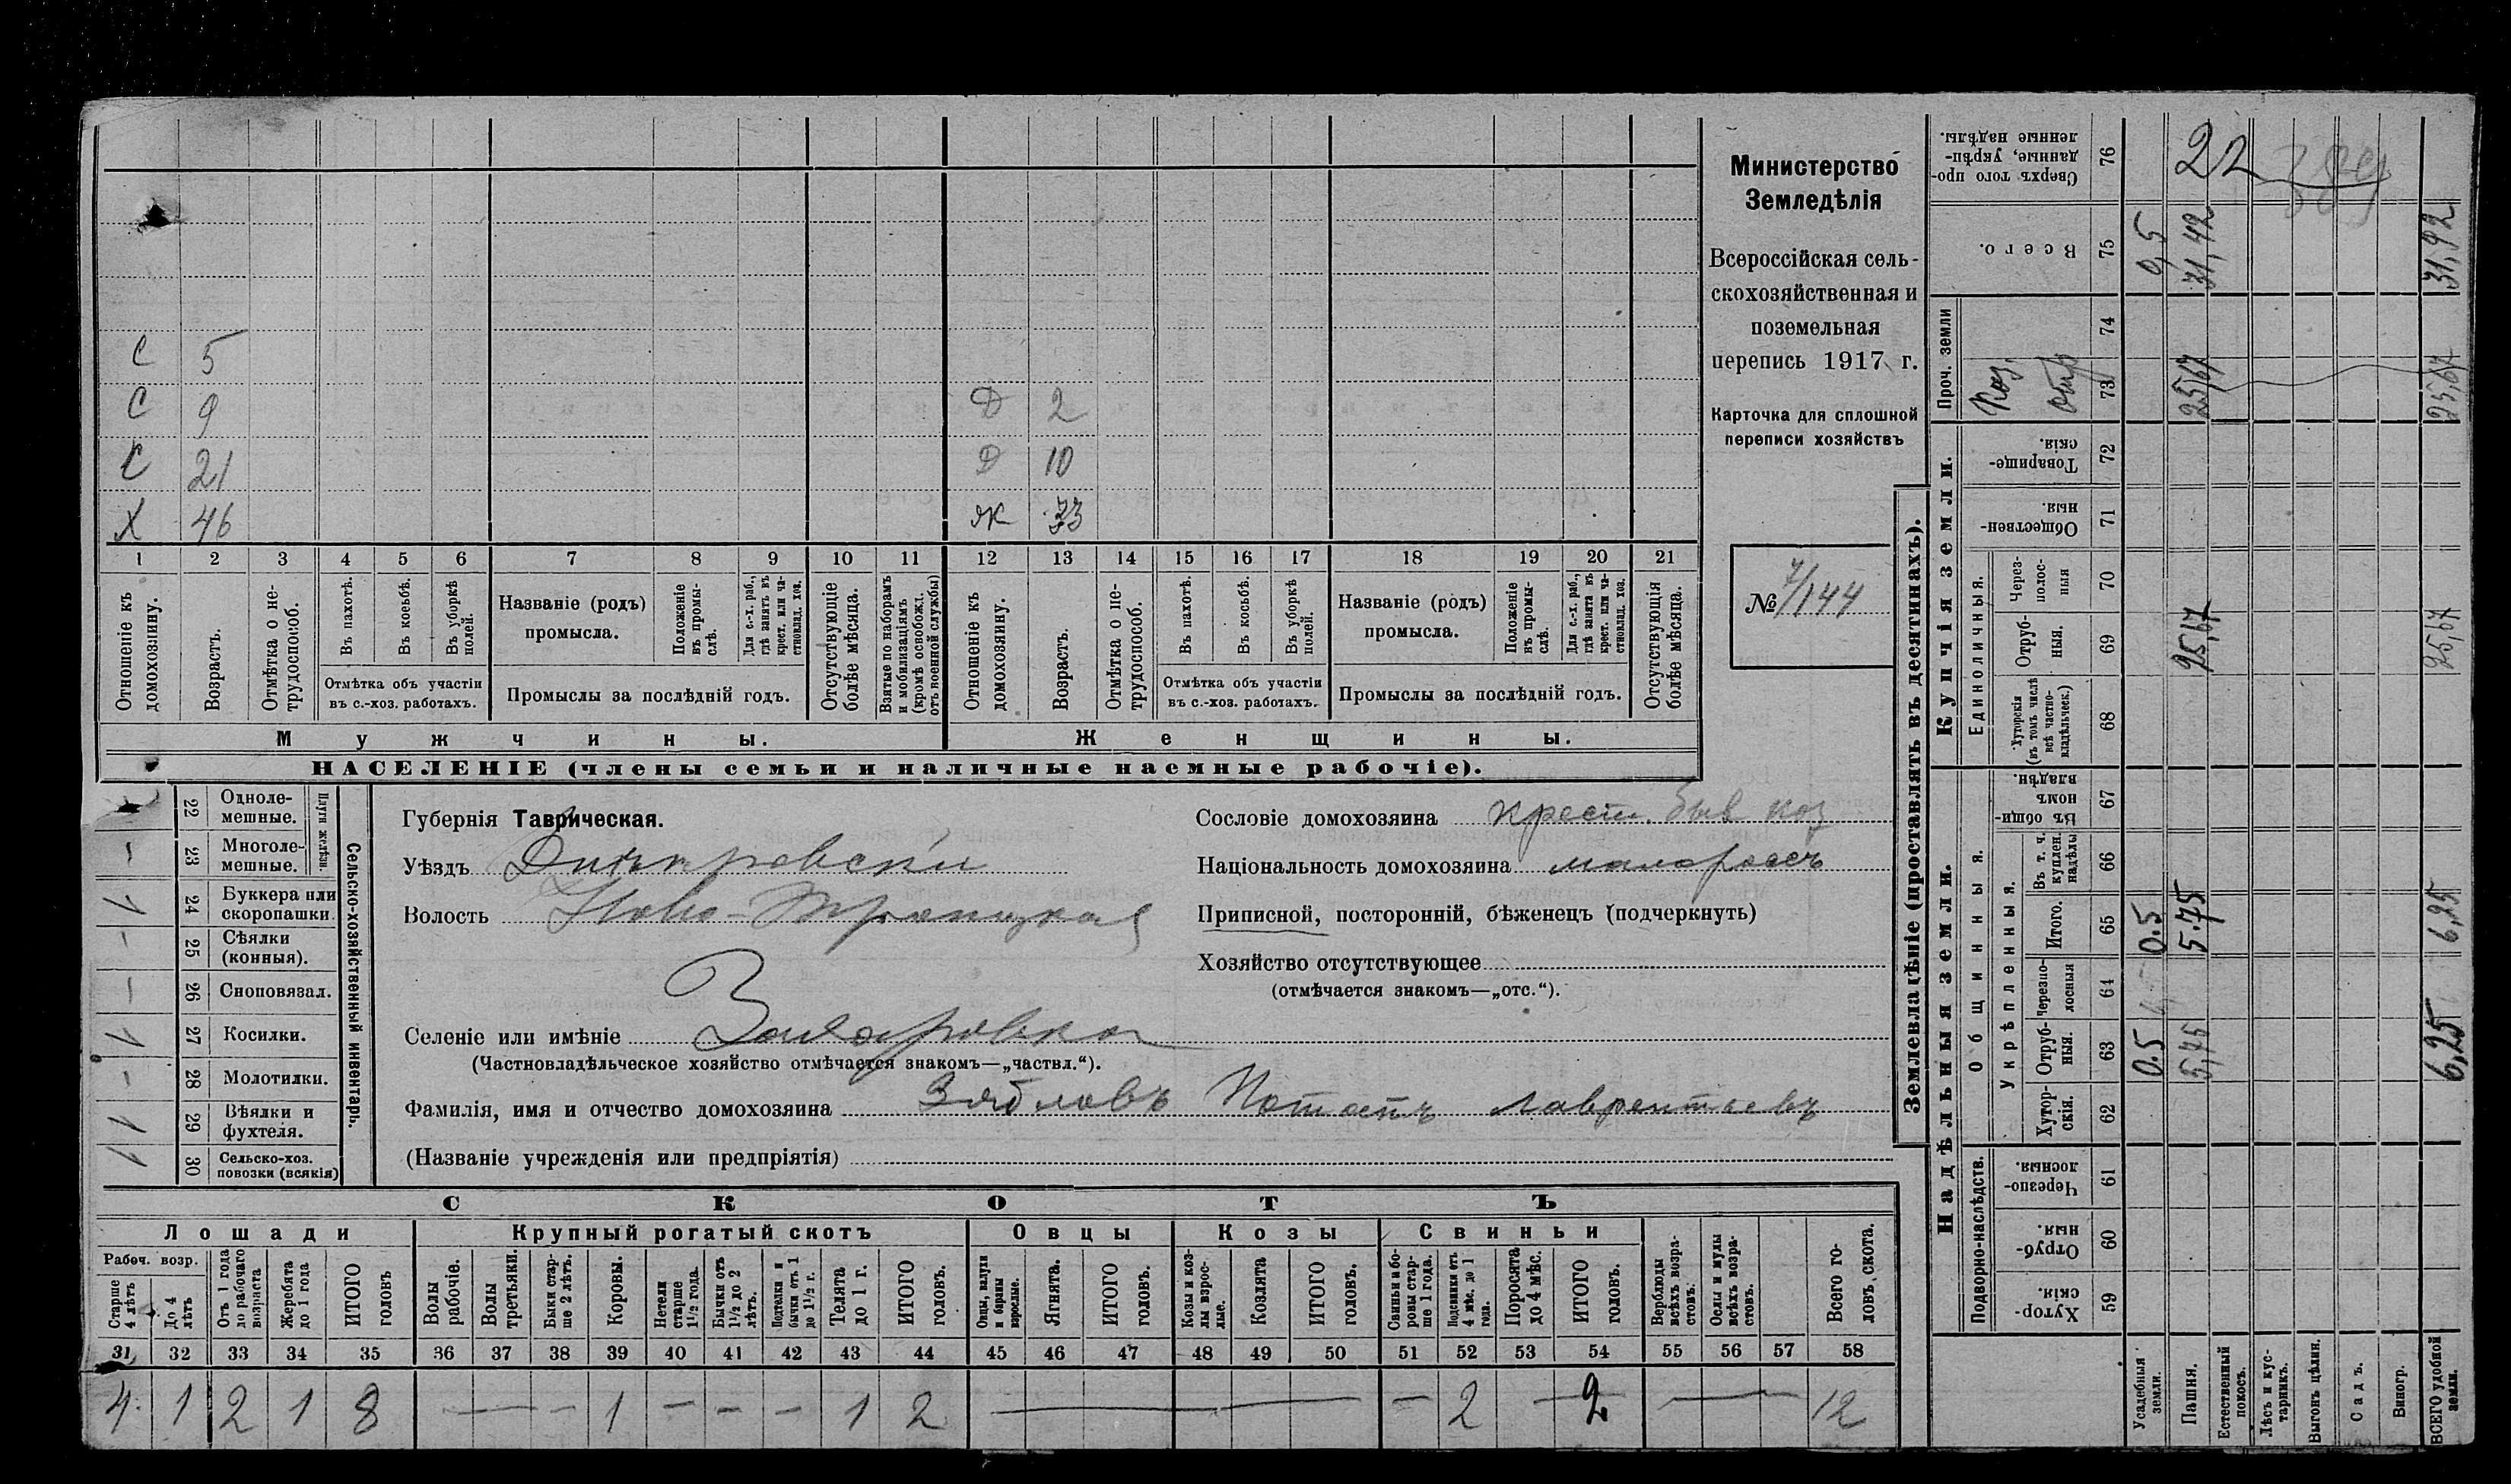 С 5
С 9 Д 2
С 21 Д 10
Х 46 Ж 33
1 2 3 4 5 6 7 8 9 10 11 12 13 14 15 16 17 18 19 20 21
Отношеніе къ домохозяину.
Возрастъ.
Отмѣтка о не-трудоспособ.
Въ пахотѣ.
Въ косьбѣ.
Въ уборкѣ полей.
Отмѣтка объ участіи въ с.-хоз. работахъ.
Названіе (родъ) промысла.
Положеніе въ промы-слѣ.
Для с.-х. раб., гдѣ занятъ въ крест. или ча-стновлад. хоз.
Промыслы за послѣдній годъ.
Отсутствующіе болѣе мѣсяца.
Взятые по наборамъ и мобилизаціямъ (кромѣ освобожд. отъ военной службы)
Отношеніе къ домохозяину.
Возрастъ.
Отмѣтка о не-трудоспособ.
Въ пахотѣ.
Въ косьбѣ.
Въ уборкѣ полей.
Отмѣтка объ участіи въ с.-хоз. работахъ.
Названіе (родъ) промысла.
Положеніе въ промы-слѣ.
Для с.-х. раб., гдѣ занята въ крест. или ча-стновлад. хоз.
Промыслы за послѣдній годъ.
Отсутствующія болѣе мѣсяца.
Мужчины.
Женщины.
НАСЕЛЕНІЕ (члены семьи и наличные наемные рабочіе).
Министерство
Земледѣлія
Всероссійская сель-
скохозяйственная и
поземельная
перепись 1917 г.
Карточка для сплошной
переписи хозяйствъ
№ 7/144
Сельско-хозяйственный инвентарь.
Плуги желѣзн.
22 Одноле-мешные.
– 23 Многоле-мешные.
1 24 Буккера или скоропашки
– 25 Сѣялки (конныя).
– 26 Сноповязал.
1 27 Косилки.
– 28 Молотилки.
1 29 Вѣялки и фухтеля.
1 30 Сельско-хоз. повозки (всякія)
Губернія Таврическая.
Уѣздъ Днѣпровскій
Волость Ново-Троицкая
Селеніе или имѣніе Захаровка
(Частновладѣльческое хозяйство отмѣчается знакомъ—„частвл.“).
Фамилія, имя и отчество домохозяина Зябловъ Потапъ Лаврентьевъ
(Названіе учрежденія или предпріятія)
Сословіе домохозяина крест. быв коз
Національность домохозяина малороссъ
Приписной, посторонній, бѣженецъ (подчеркнуть)
Хозяйство отсутствующее
(отмѣчается знакомъ—„отс.“).
СКОТЪ
Лошади Крупный рогатый скотъ Овцы Козы Свиньи
Рабоч. возр.
Старше 4 лѣтъ
До 4 лѣтъ
Отъ 1 года до рабочаго возраста
Жеребята до 1 года
ИТОГО головъ
Волы рабочіе.
Волы третьяки.
Быки стар-ше 2 лѣтъ.
Коровы.
Нетели старше 1½ года.
Бычки отъ 1½ до 2 лѣтъ.
Подтелки и бычки отъ 1 до 1½ г.
Телята до 1 г.
ИТОГО головъ.
Овцы, валухи и бараны взрослые.
Ягнята.
ИТОГО головъ.
Козы и коз-лы взрос-лые.
Козлята
ИТОГО головъ.
Свиньи и бо-ровы стар-ше 1 года.
Подсвинки отъ 4 мѣс. до 1 года.
Поросята до 4 мѣс.
ИТОГО головъ.
Верблюды всѣхъ возра-стовъ.
Ослы и мулы всѣхъ возра-стовъ.
Всего го-ловъ скота.
31 32 33 34 35 36 37 38 39 40 41 42 43 44 45 46 47 48 49 50 51 52 53 54 55 56 57 58
4 1 2 1 8 — – 1 – – – 1 2 — — — – 2 – 2 — — 12
Землевладѣніе (проставлять въ десятинахъ).
Надѣльныя земли.
Купчія земли.
Проч. земли
Подворно-наслѣдств.
Общинныя.
Укрѣпленныя.
Единоличныя.
Сверхъ того про-данные, укрѣп-ленные надѣлы. 76 22
Всего. 75 0,5 31,42 31,92
74
Коз. отр 73 25,67 25,67
Товарище-скія. 72
Обществен-ныя. 71
Через-полос-ныя 70
Отруб-ныя. 69 25,67 25,67
Хуторскія (въ томъ числѣ всѣ частно-владѣльческ.) 68
Въ общи-номъ владѣн. 67
Въ т. ч. куплен. надѣлы 66
Итого. 65 0.5 5.75 6,25
Черезпо-лосныя 64
Отруб-ныя. 63 0.5 5,75 6,25
Хутор-скія. 62
Черезпо-лосныя. 61
Отруб-ныя. 60
Хутор-скія. 59
Усадебныя земли.
Пашня.
Естественный покосъ.
Лѣсъ и кус-тарникъ.
Выгонъ цѣлин.
Садъ.
Виногр.
ВСЕГО удобной земли.